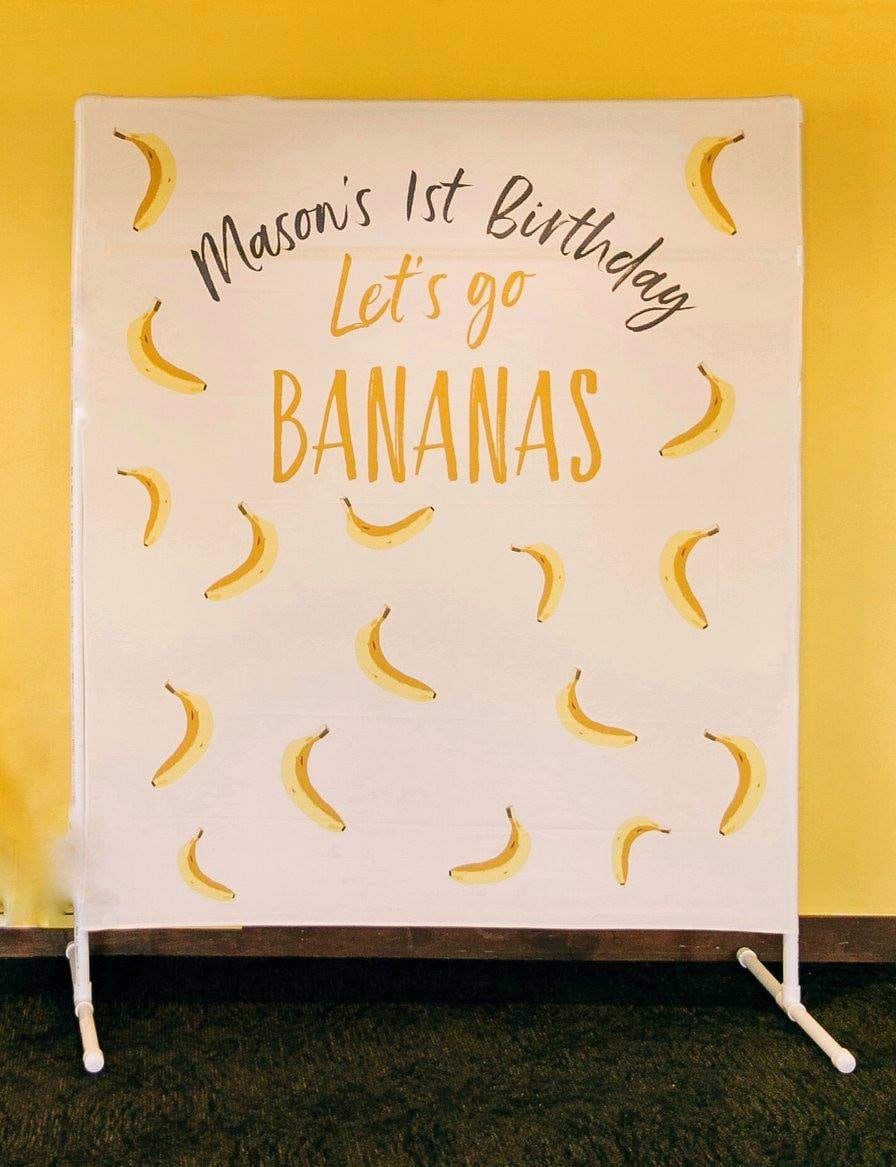 Mason's 1st Birthday
Let's go
BANANAS